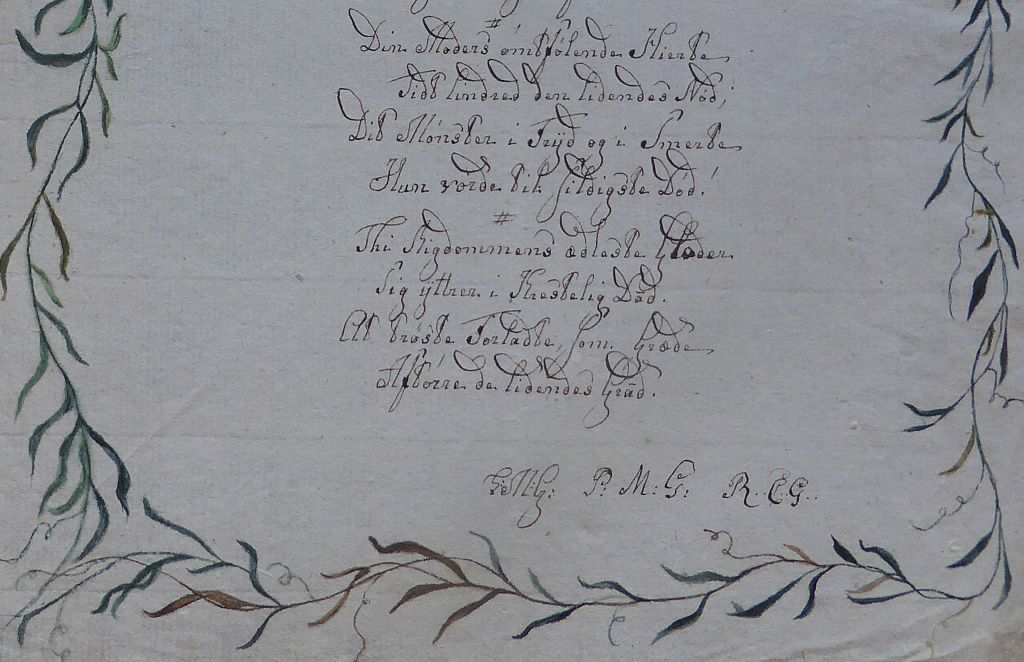 #
Din Moders ómtfølende Hierte
Tidt lindred den lidendes Nød,
Dit Mónster i Frÿd og i Smerte
Hun vorde til sildigste Død!
#
Thi Rigdommens ædleste Glæder
Sig ÿttrer i Kiestelig Dåd.
At trøste Forladte, som Græde
Aftórre de lidendes Gråd.
P. M: G: R. C. G.